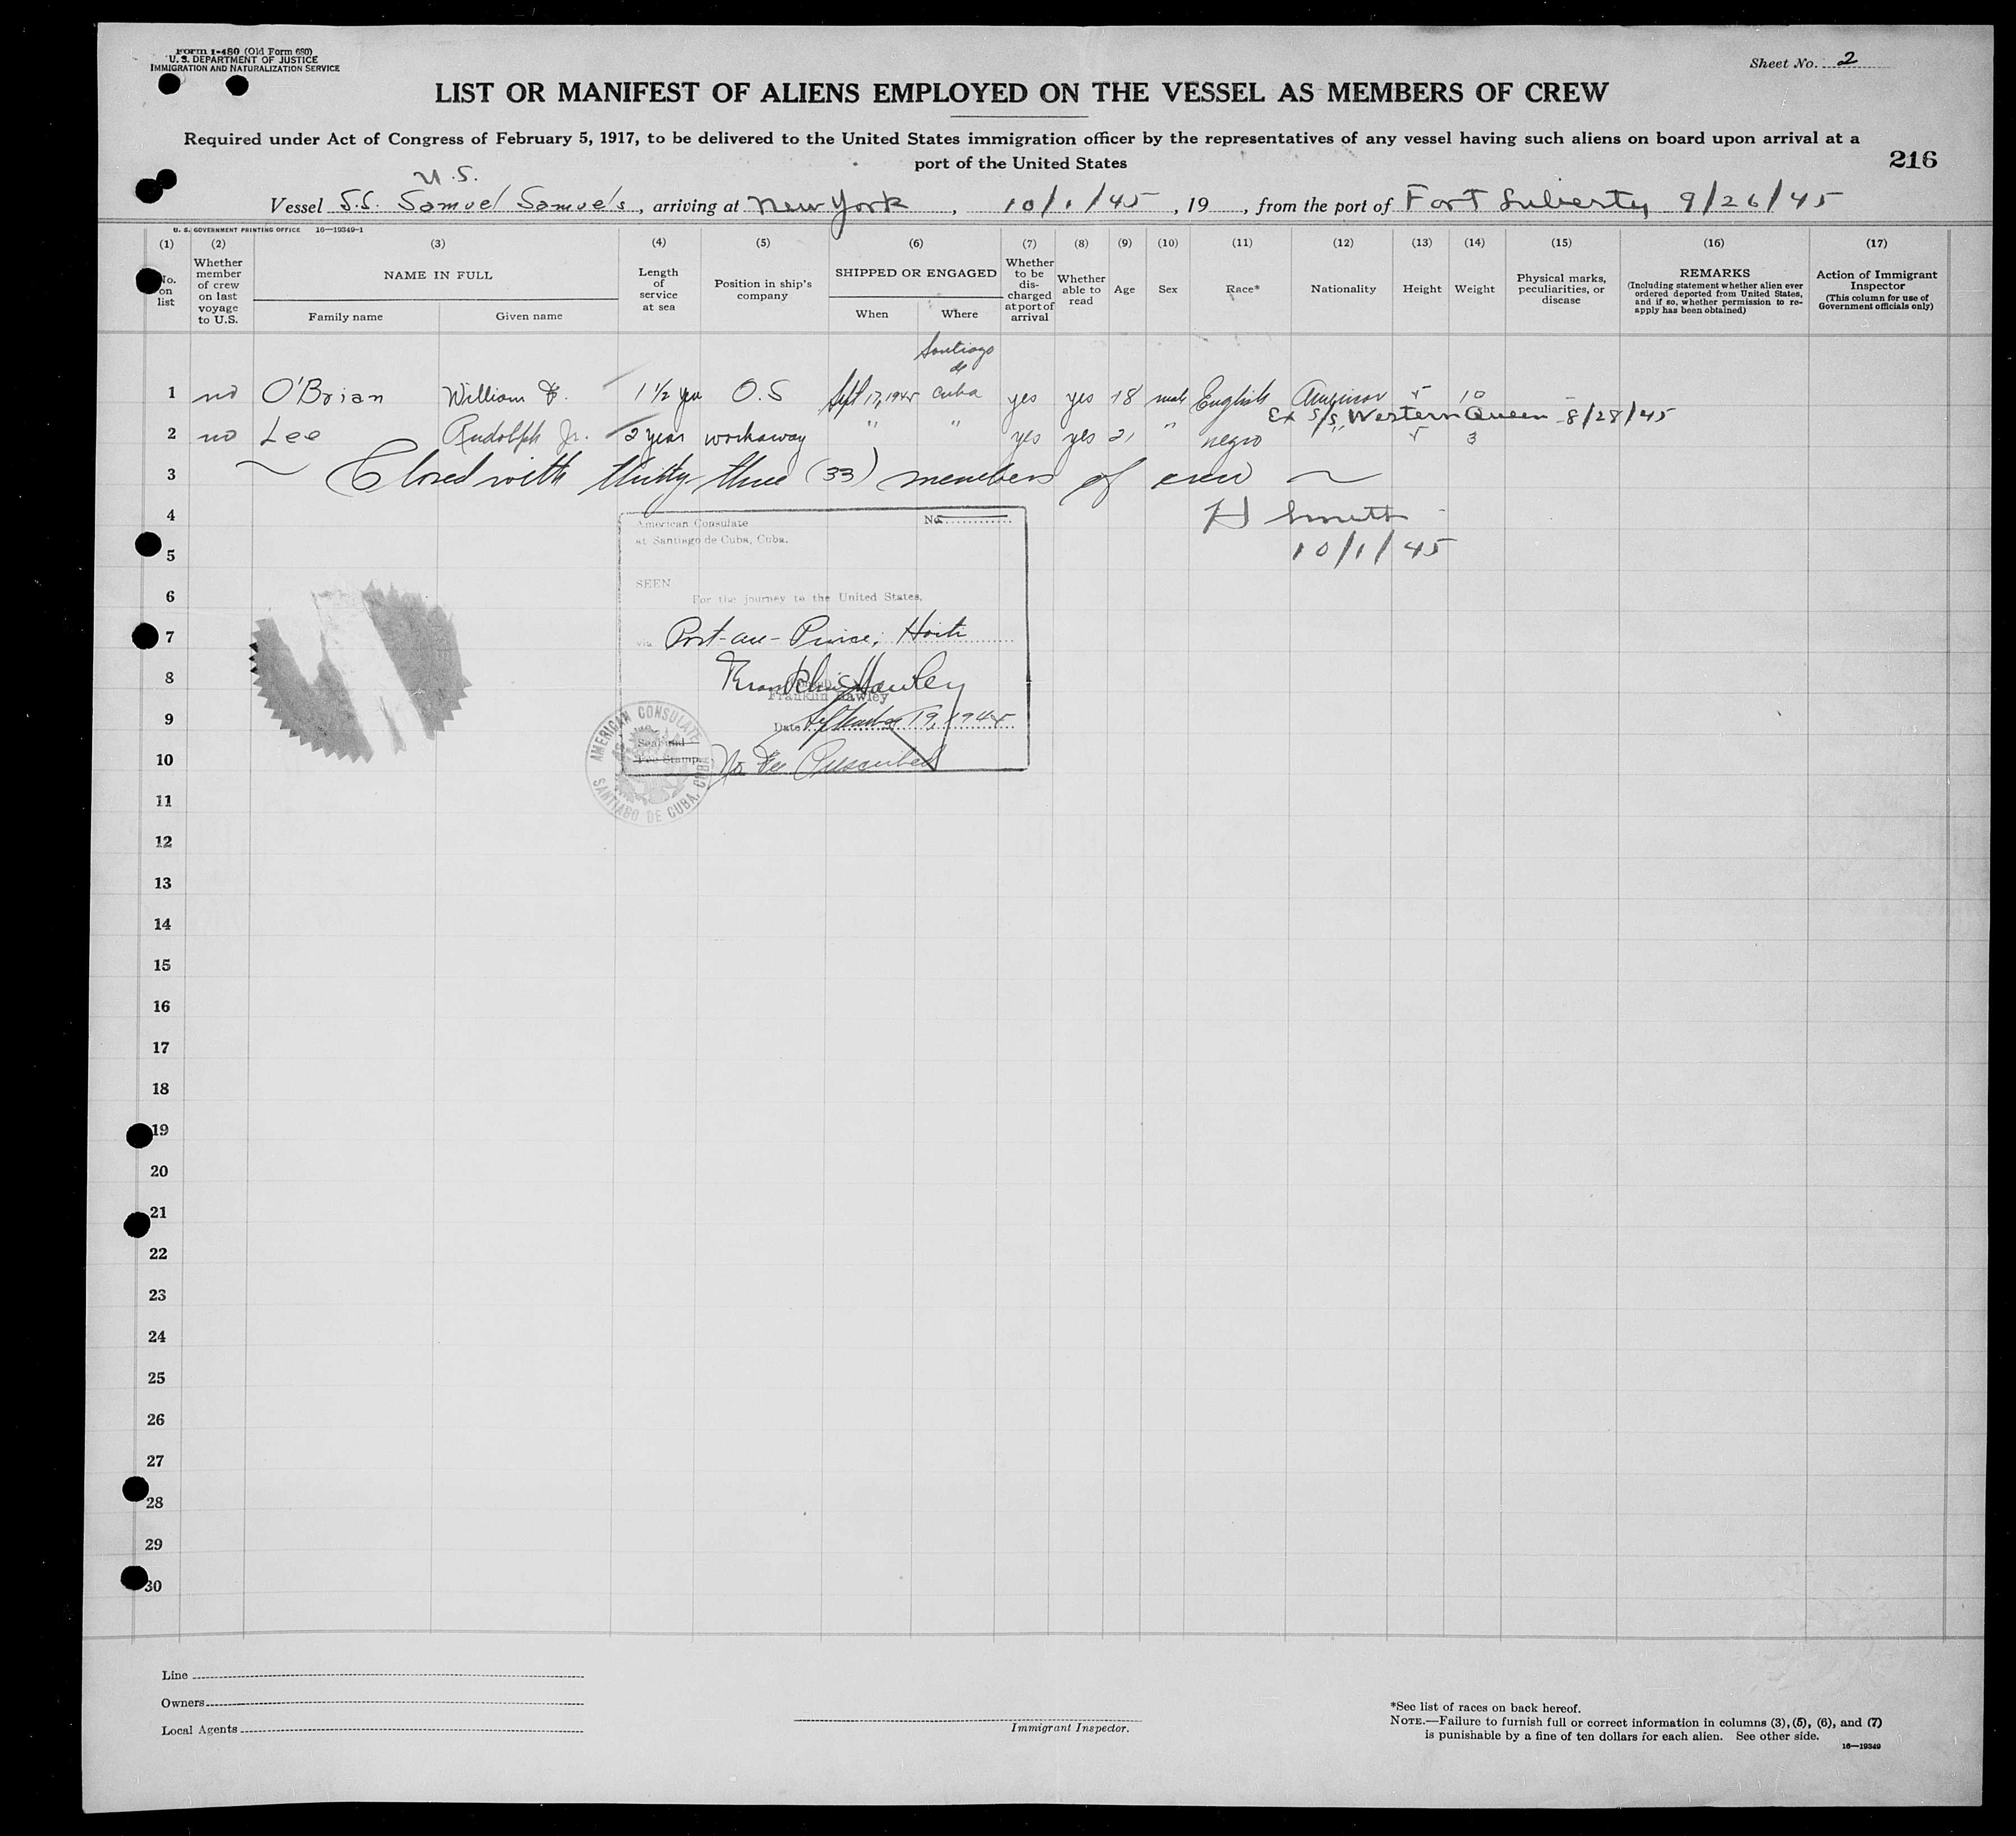 Form I-480 (Old Form 680)
U. S. DEPARTMENT OF JUSTICE
IMMIGRATION AND NATURALIZATION SERVICE
Sheet No. 2
LIST OR MANIFEST OF ALIENS EMPLOYED ON THE VESSEL AS MEMBERS OF CREW
Required under Act of Congress of February 5, 1917, to be delivered to the United States immigration officer by the representatives of any vessel having such aliens on board upon arrival at a
port of the United States
216
U.S.
Vessel S.S. Samuel Samuels, arriving at New York, 10/1/45, 19, from the port of Fort Liberty 9/26/45
U. S. GOVERNMENT PRINTING OFFICE 16—19349-1
(1) (2) (3) (4) (5) (6) (7) (8) (9) (10) (11) (12) (13) (14) (15) (16) (17)
No. on list
Whether member of crew on last voyage to U.S.
NAME IN FULL
Family name
Given name
Length of service at sea
Position in ship's company
SHIPPED OR ENGAGED
When
Where
Whether to be discharged at port of arrival
Whether able to read
Age
Sex
Race*
Nationality
Height
Weight
Physical marks, peculiarities, or disease
REMARKS
(Including statement whether alien ever ordered deported from United States, and if so, whether permission to reapply has been obtained)
Action of Immigrant Inspector
(This column for use of Government officials only)
Santiago
de
1 no O'Brian William F. 1 1/2 year O.S Sept 17, 1945 Cuba yes yes 18 male English American 5 10
Ex S/S, Western Queen 8/28/45
2 no Lee Rudolph Jr. 2 year workaway " " yes yes 21 " negro " 5 3
3 Closed with thirty-three (33) members of crew
4 H Smith
5 10/1/45
American Consulate No.
at Santiago de Cuba, Cuba.
SEEN
For the journey to the United States,
via Port-au-Prince, Haiti
Franklin Hawley
Franklin Hawley
Date September 19, 1945
Seal and
Fee Stamp.
No Fee Prescribed
AMERICAN CONSULATE
SANTIAGO DE CUBA, CUBA
6
7
8
9
10
11
12
13
14
15
16
17
18
19
20
21
22
23
24
25
26
27
28
29
30
Line
Owners
Local Agents
Immigrant Inspector.
*See list of races on back hereof.
NOTE.—Failure to furnish full or correct information in columns (3), (5), (6), and (7)
is punishable by a fine of ten dollars for each alien. See other side.
16—19349